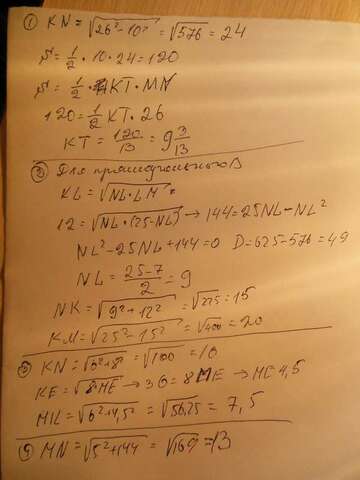 ① KN = √26²-10² = √576 = 24
S = 1/2 · 10 · 24 = 120
S = 1/2 · KT · MN
120 = 1/2 KT · 26
KT = 120/13 = 9 3/13
② Для прямоугольного Δ
KL = √NL · LM
12 = √NL · (25-NL) → 144 = 25NL - NL²
NL² - 25NL + 144 = 0 D = 625 - 576 = 49
NL = 25-7/2 = 9
NK = √9² + 12² = √225 = 15
KM = √25² - 15² = √400 = 20
KN = √6² + 8² = √100 = 10
KE = √8ME → 36 = 8ME → ME 4,5
MK = √6² + 4,5² = √56,25 = 7,5
MN = √5² + 144 = √169 = 13